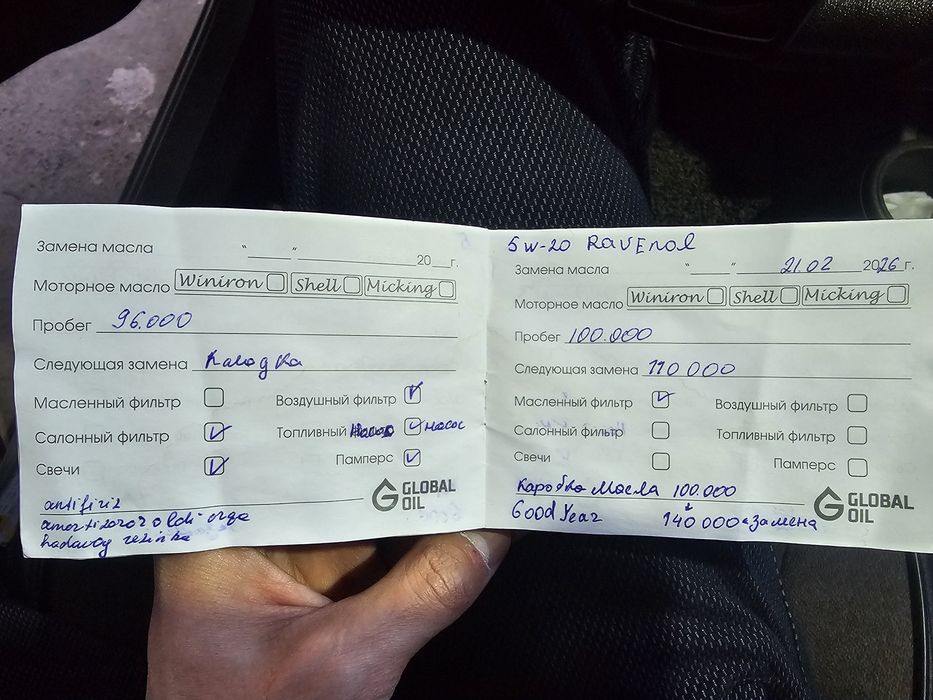 Замена масла "___" ________ 20__г.
Моторное масло Winiron Shell Micking
Пробег 96.000
Следующая замена Калодка
Масленный фильтр
Воздушный фильтр
Салонный фильтр
Топливный насос
Свечи
Памперс
antifiriz
amortizator oldi orqa
hadavoy rezinka
GLOBAL
OIL
5w-20 RavEnol
Замена масла "___" 21.02 2026 г.
Моторное масло Winiron Shell Micking
Пробег 100.000
Следующая замена 110 000
Масленный фильтр
Воздушный фильтр
Салонный фильтр
Топливный фильтр
Свечи
Памперс
каробка масла 100.000
Good Year 140 000 замена
GLOBAL
OIL